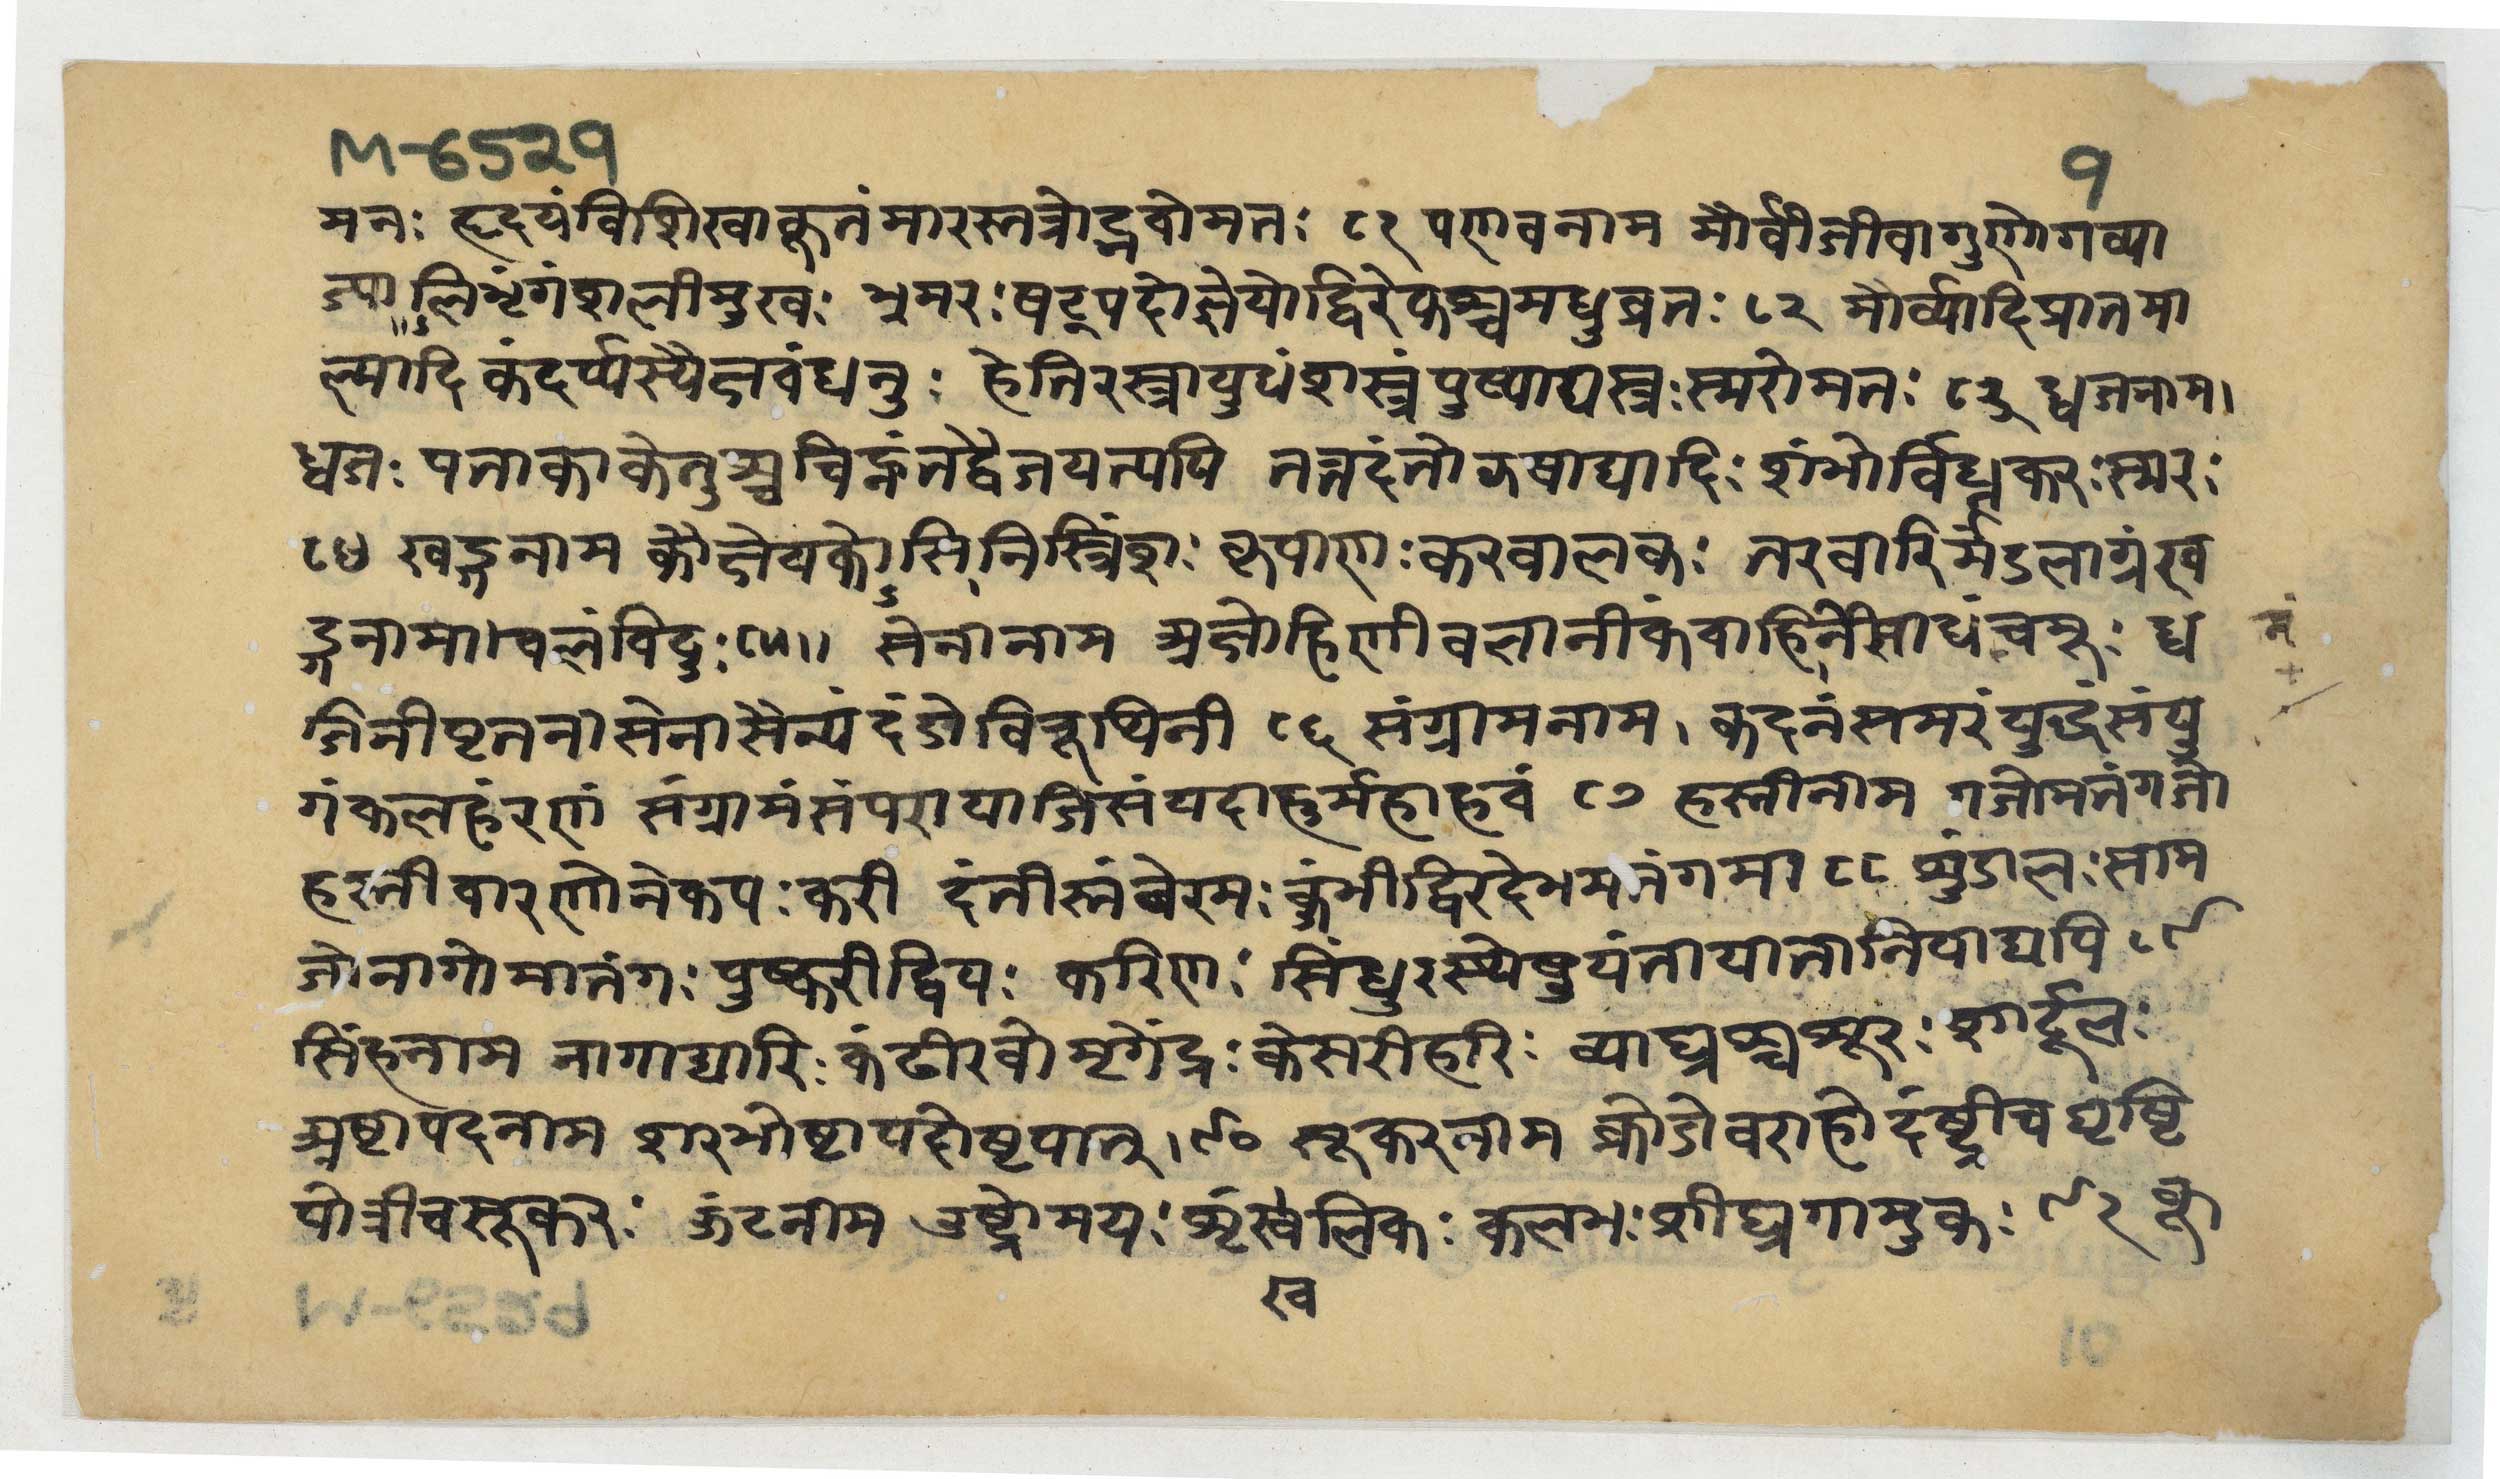 M-6529
9
मनः हृदयंविशिखाकूतंमारस्तत्रोद्भवोमतः ८१ पणवनाम मौर्वीजीवागुणोगव्या
ज्या लिभृंगंशलीमुखः भ्रमरःषट्पदोज्ञेयोद्विरेफश्चमधुव्रतः ८२ मौर्व्यादिप्रातमा
ल्मादि कंदर्प्पस्यैक्षवंधनु: हेतिरस्त्रायुधंशस्त्रंपुष्पाद्यस्त्रःस्मरोमतः ८३ ध्वजनाम।
ध्वजः पताकाकेतुश्चचिह्नंतद्वैजयन्त्यपि तत्तदंतोझषाद्यादिः शंभोर्विघ्नकरःस्मरः
८४ खड्गनाम कौक्षेयकोऽसिनिस्त्रिंशः कृपाणःकरवालकः तरवारिर्मंडलाग्रंख
ड्गनामावलंविदुः ८५॥ सेनानाम अक्षोहिणीवलानीकंवाहिनीसाधंचमूः ध्व
जिनीपृतनासेनासैन्यंदंडोविरूथिनी ८६ संग्रामनाम। कदनंसमरंयुद्धंसंयु
गंकलहंरणं संग्रामंसंपरायाजिसंयदाहुर्महाहवं ८७ हस्तीनाम गजोमतंगजो
हस्तीवारणोनेकपः करी दंतीस्तंबेरमः कुंभीद्विरदेभमतंगमा ८८ शुंडालःसाम
जोनागोमातंगः पुष्करीद्विपः करिणः सिंधुरस्येषुयंतायातानिषाद्यपि ८९
सिंहनाम नागाद्यारिः कंठीरवोमृगेंद्रः केसरीहरिः व्याघ्रश्चमूरः शार्दूलः
अष्टापदनाम शरभोष्टापदोष्टपात्।९० सूकरनाम क्रोडोवराहोदंष्ट्रीचघृष्टि
पोत्रीचसूकरः ऊंटनाम उष्ट्रोमयः शृंखलिकः कलभःशीघ्रगामुकः ९१ श्वा
ख